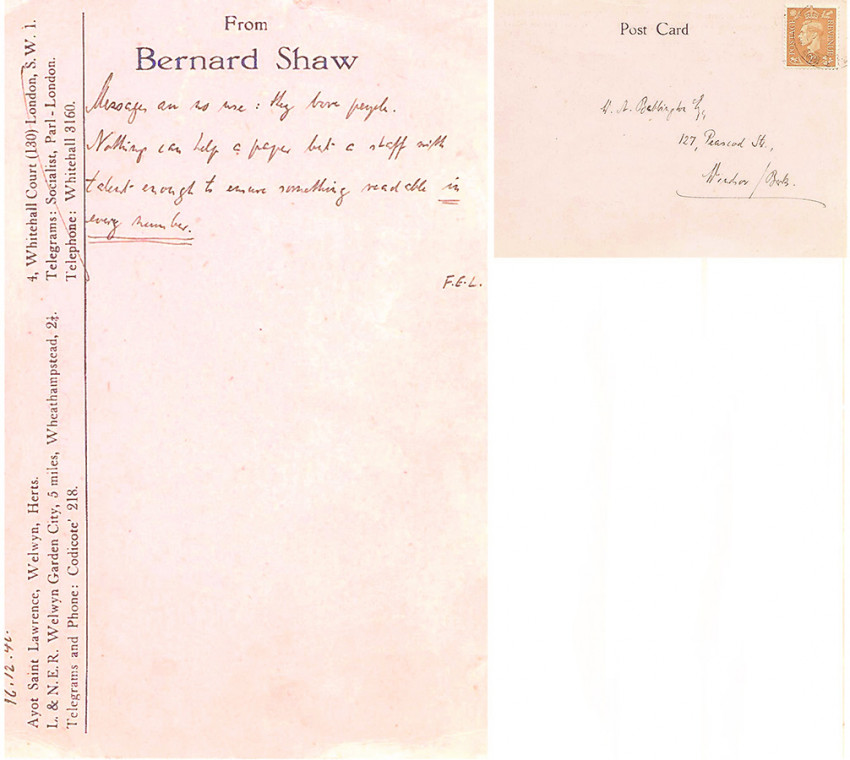 From
Bernard Shaw
4, Whitehall Court (130) London, S. W. 1.
Telegrams: Socialist, Parl-London.
Telephone: Whitehall 3160.
Messages are no use: they bore people.
Nothing can help a paper but a staff with
talent enough to ensure something readable in
every number.
F.G.L.
Ayot Saint Lawrence, Welwyn, Herts.
L. & N.E.R. Welwyn Garden City, 5 miles, Wheathampstead, 2¼.
Telegrams and Phone: Codicote' 218.
Post Card
W. A. Esq,
127, Peascod St.,
Windsor / Berks.